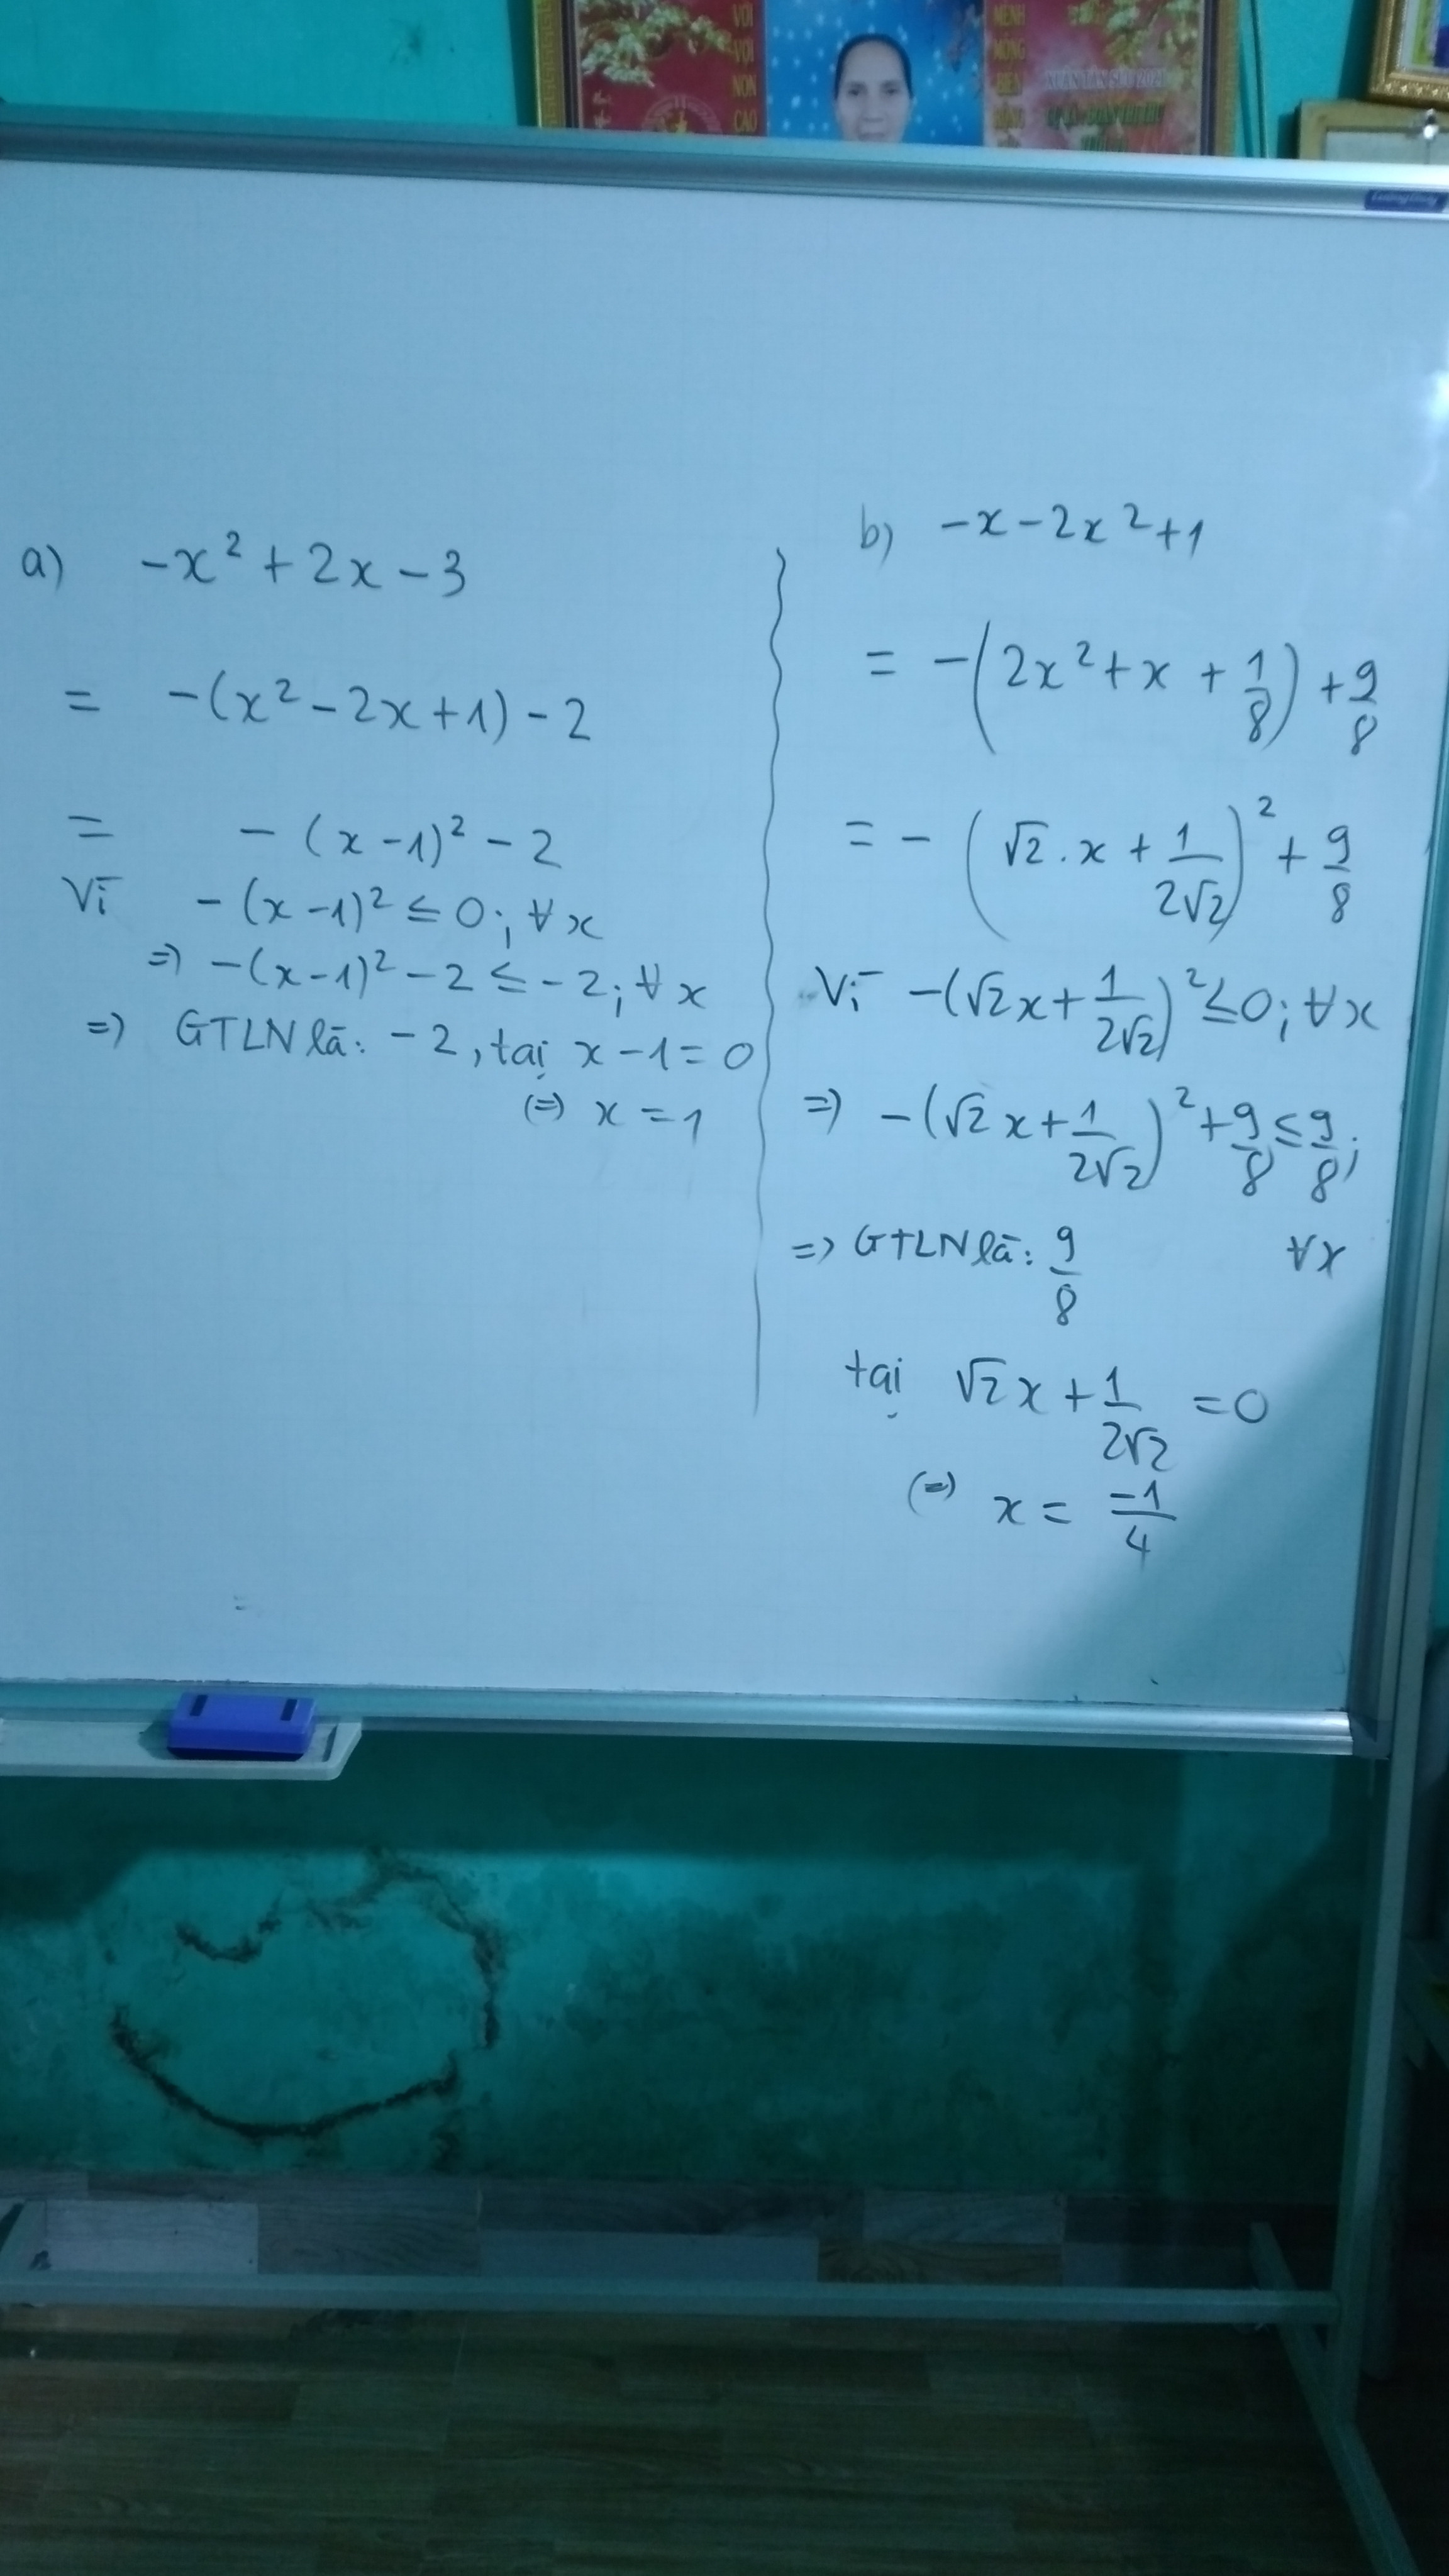 VỜI
VỢI
NON
CAO
MÊNH
MÔNG
BIỂN
a) -x² + 2x - 3
= -(x² - 2x + 1) - 2
= - (x - 1)² - 2
Vì - (x - 1)² ≤ 0; ∀x
=> -(x - 1)² - 2 ≤ - 2; ∀x
=> GTLN là: - 2, tại x - 1 = 0
(=) x = 1
b) -x - 2x² + 1
= -(2x² + x + 1/8) + 9/8
= - (√2 . x + 1/2√2)² + 9/8
Vì -(√2x + 1/2√2)² ≤ 0; ∀x
=> -(√2x + 1/2√2)² + 9/8 ≤ 9/8;
∀x
=> GTLN là: 9/8
tại √2x + 1/2√2 = 0
(=) x = -1/4